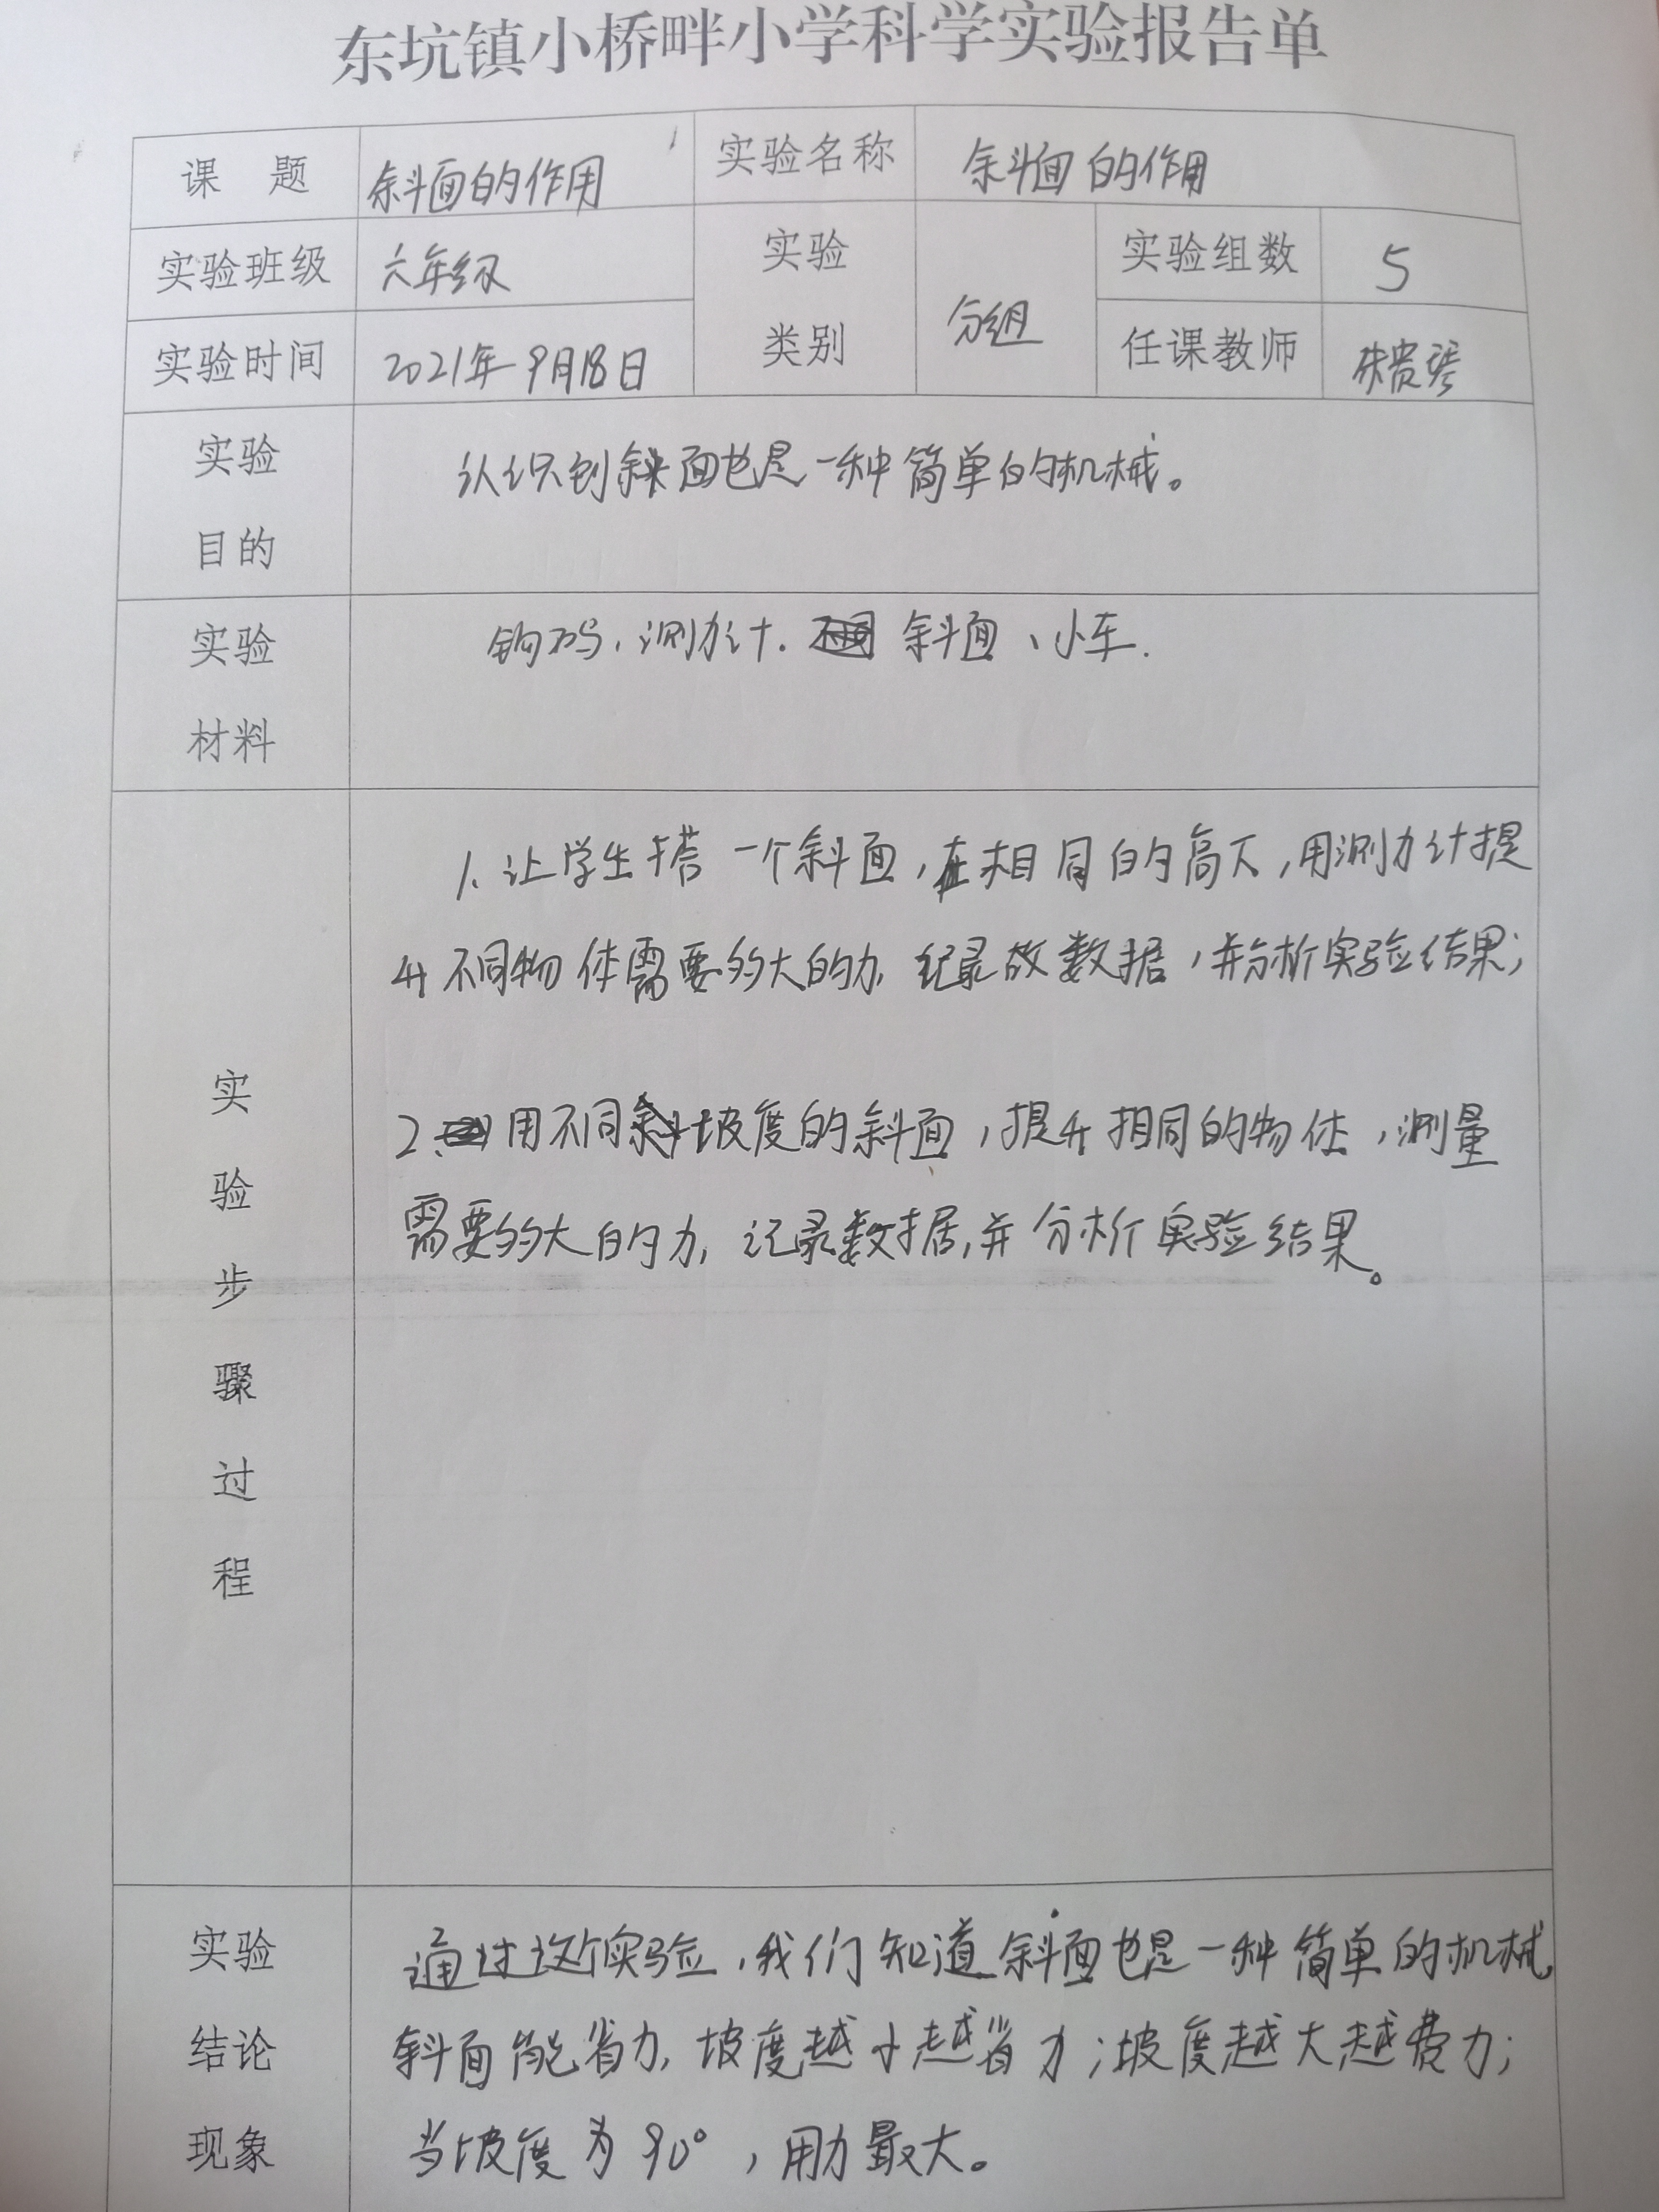 东坑镇小桥畔小学科学实验报告单
课 题 斜面的作用 实验名称 斜面的作用
实验班级 六年级 实验类别 分组 实验组数 5
实验时间 2021年9月18日 任课教师 朱贵琴
实验目的 认识到斜面也是一种简单的机械。
实验材料 钩码、测力计、斜面、小车.
实验步骤过程
1、让学生搭一个斜面,在相同的高下,用测力计提
升不同物体需要多大的力,纪录改数据,并分析实验结果;
2、用不同坡度的斜面,提升相同的物体,测量
需要多大的力,记录数据,并分析实验结果。
实验结论现象
通过这个实验,我们知道斜面也是一种简单的机械,
斜面能省力,坡度越小越省力;坡度越大越费力;
当坡度为90°,用力最大。